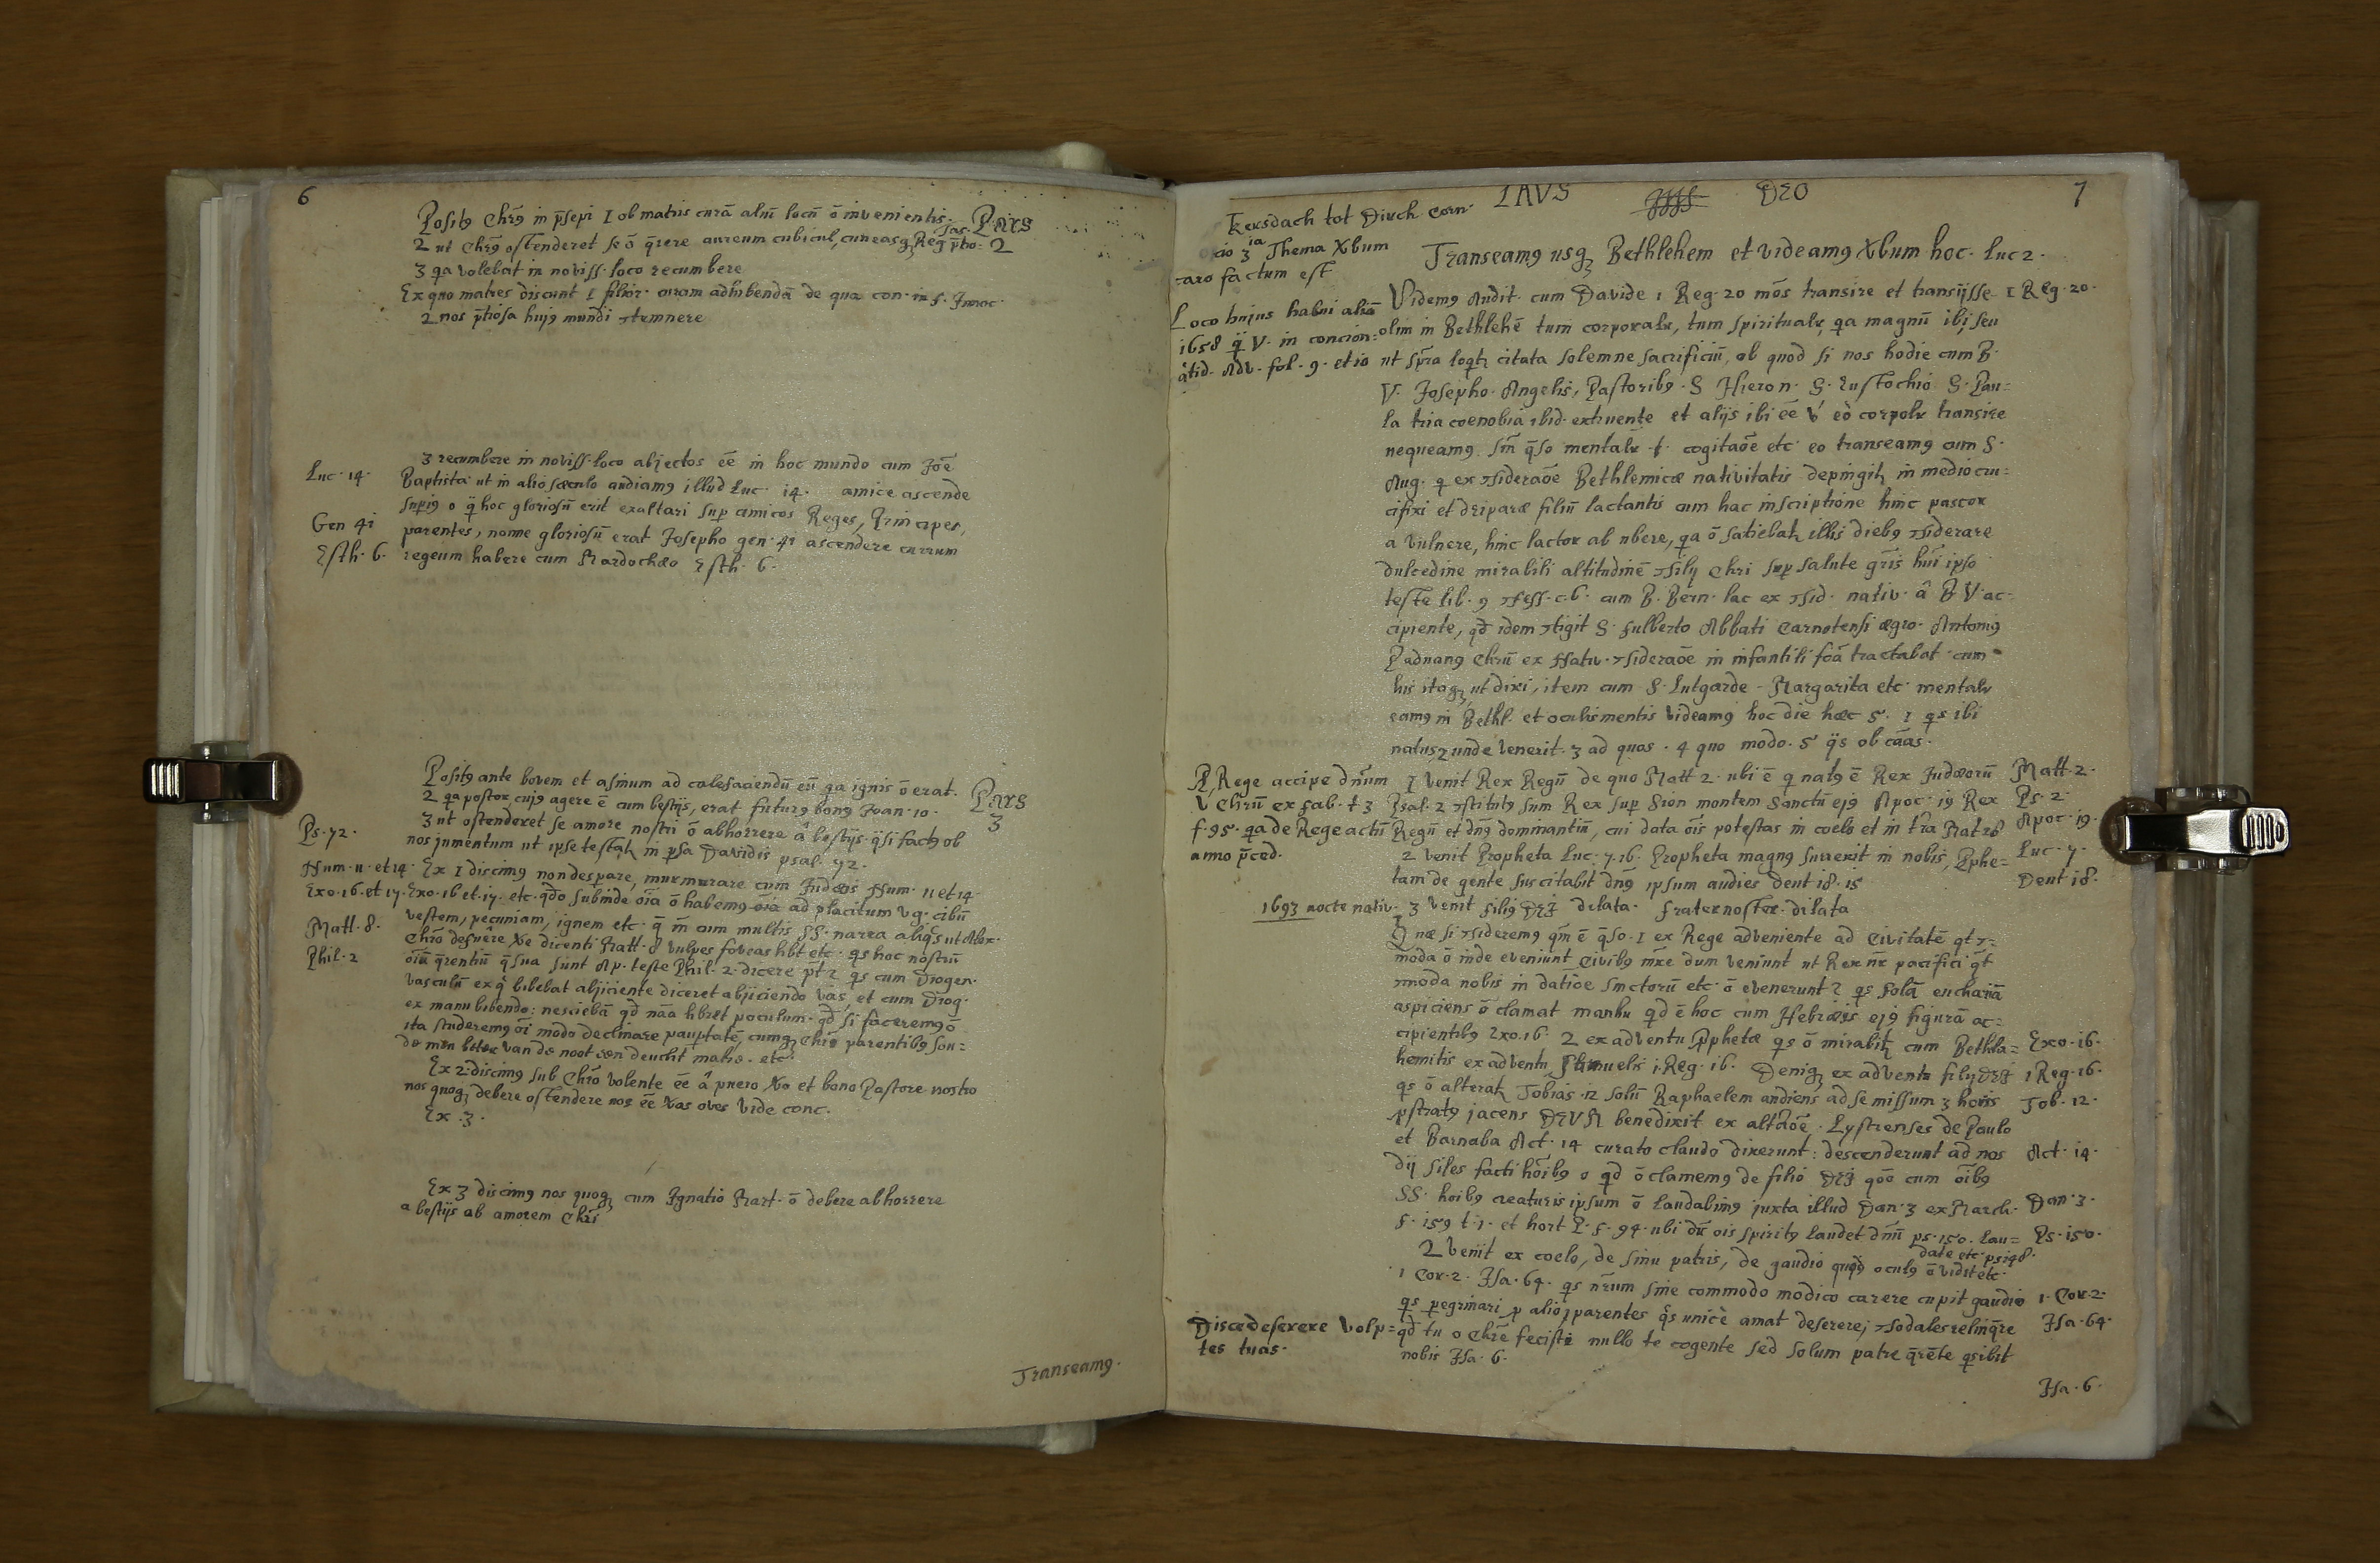 6
Posit9 Chrs9 in p̄sepi 1 ob matris curā aliū locū ō invenientis. Pars
2 ut Chrs9 ostenderet se ō q̄rere aureum cubicul, 2
3 qa volebat in noviss. loco recumbere
Ex quo matres discunt 1 filior. curam adhibendā de qua con. in f. Innoc.
2 nos p̄tiosa huj9 mundi ɔtemnere
3 recumbere in noviss. loco abjectos ēē in hoc mundo cum Joē
Luc. 14. Baptista ut in alio sæculo audiamus illud Luc. 14. amice ascende
superi9 o q̄ hoc gloriosū erit exaltari sup amicos Reges, Principes,
Gen 41 parentes, nonne gloriosū erat Josepho gen. 41 ascendere currum
Esth. 6. regeum habere cum Mardochæo Esth. 6.
Posit9 ante bovem et asinum ad calefaciendū eū qa ignis ō erat. Pars
2 qa pastor, cuj9 agere ē cum bestijs, erat futur9 bon9 Joan. 10. 3
3 ut ostenderet se amore nostri ō abhorrere â bestijs. q̄si fact9 ob
Ps. 72. nos jumentum ut ipse testatr in psa Davidis psal. 72.
Num. 11. et 14. Ex 1 discim9 non desperare, murmurare cum Judæis Num. 11 et 14.
Exo. 16. et 17. Exo. 16 et 17. etc. qdo subinde oīa ō habem9 ad placitum v.g. cibū
vestem, pecuniam, ignem etc. cum multis SS.
Matt. 8. Chrō dicenti Matt. 8 vulpes foveas hbt etc. qs hoc nostrū
Phil. 2 oīū q̄rentiū q̄ sua sunt Ap. teste Phil. 2. dicere pt? qs cum Diogen.
vasculū ex q̊ bibebat abjiciente diceret abjiciendo vas, et cum Diog.
ex manu bibendo: nesciebā qd nāa hbret poculum. qd si facerem9 ō
ita studerem9 oi modo declinare paupertatē, cumq Chrō parentib9 sou=
de men van de noot een deucht make. etc.
Ex 2. discim9 sub Chrō volente ēē â puero Xo et bono Pastore nostro
nos quoq debere ostendere nos ēē Xas oves vide conc.
Ex. 3.
Ex 3 discim9 nos quoq cum Ignatio Mart. ō debere abhorrere
a bestijs ob amorem Chrī
Transeam9.
LAVS DEO 7
Kersdach tot Dirck Corn.
3ia Thema Xbum
caro factum est
Transeam9 usq Bethlehem et videam9 Xbum hoc. Luc 2.
Loco hujus habui aliā
1658 q̄ V. in concion=
Adv. fol. 9. et 10
Videm9 Audit. cum Davide 1 Reg. 20 mōs transire et transijsse 1 Reg. 20.
olim in Bethlehē tum corporalr, tum spiritualr, qa magnū ibi seu
ut sp̄ra loqtr citata solemne sacrificiū, ob quod si nos hodie cum B.
V. Josepho. Angelis, Pastorib9. S Hieron. S. Eustochio S. Pau=
la tria coenobia ibid. extruente et alijs ibi ēē v eò corpolr transire
nequeam9. Sm̄ q̄so mentalr .f. cogitaōe etc. eo transeam9 cum S.
Aug. q ex ɔsideraōe Bethlemicæ nativitatis depingitr in medio cru=
cifixi et deiparæ filiū lactantis cum hac inscriptione hinc pascor
a vulnere, hinc lactor ab ubere, qa ō satiebatr illis dieb9 ɔsiderare
dulcedine mirabili altitudinē ɔsilij Chri sup salute gr̄is hūi ipso
teste lib. 9 ɔfess. c. 6. cum B. Bern. lac ex ɔsid. nativ. â B V. ac=
cipiente, qd idem ɔtigit S. Fulberto Abbati Carnotensi ægro. Antoni9
Paduan9 Chrū ex Nativ. ɔsideraōe in infantili foā tractabat. cum
his itaq, ut dixi, item cum S. Lutgarde. Margarita etc. mentalr
eam9 in Bethl. et oculis mentis videam9 hoc die hæc 5. 1 qs ibi
natus, 2 unde venerit. 3 ad quos. 4 quo modo. 5 q̄s ob cāas.
P, Rege accipe dn̄um
V Chrū ex fab. t 3
f. 95. qa de Rege actū
anno p̄ced.
1 venit Rex Regū de quo Matt 2. ubi ē q nat9 ē Rex Judæorū Matt. 2.
Psal. 2 ɔstitut9 sum Rex sup Sion montem Sanctū ej9 Apoc. 19 Rex Ps. 2.
Regū et dn̄9 dominantiū, cui data ōis potestas in coelo et in tr̄a Mat. 28 Apoc. 19.
2 venit Propheta Luc. 7. 16. Propheta magn9 surrexit in nobis, Prophe= Luc. 7.
tam de gente suscitabit dn̄9 ipsum audies Deut 18. 15 Deut 18.
1693 nocte nativ. 3 venit fili9 DEI dilata. frater noster. dilata
Quæ si ɔsiderem9 qm̄ ē q̄so. 1 ex Rege adveniente ad civitatē qt ɔ=
moda ō inde eveniunt civib9 dum veniunt ut Rex nr̄ pacifici q̄t
ɔmoda nobis in datiōe etc. ō evenerunt? qs solā euchariā
aspiciens ō clamat manhu qd ē hoc cum Hebræis ej9 figurā ac=
cipientib9 Exo. 16. 2 ex adventu Pphetæ qs ō mirabitr cum Bethle= Exo. 16.
hemitis ex adventu Samuelis 1. Reg. 16. Deniq ex adventu filij DEI 1 Reg. 16.
qs ō alteratr Tobias. 12 solū Raphaelem audiens ad se missum 3 horis Tob. 12.
pstrat9 jacens DEUM benedixit ex altāōe. Lystrenses de Paulo
et Barnaba Act. 14 curato claudo dixerunt: descenderunt ad nos Act. 14.
dij siles facti hōib9 o qd ō clamem9 de filio DEI qōo cum ōib9
SS. hoib9 creaturis ipsum ō laudabim9 juxta illud Dan. 3 ex March. Dan. 3.
f. 159 t. 1. et hort P. f. 94. ubi dr̄ ois spirit9 laudet dn̄ū ps. 150. Lau= Ps. 150.
date etc. ps 148.
2 venit ex coelo, de sinu patris, de gaudio quod ocul9 ō vidit etc.
1 Cor. 2. Isa. 64. qs nr̄um sine commodo modico carere cupit gaudio 1. Cor. 2.
qs pegrinari p alio, parentes q̊s unicè amat deserere, ɔsodales relinq̄re Isa. 64.
Disce deserere volp=
tes tuas.
qd tu o Chrē fecisti nullo te cogente sed solum patre q̄rēte qs ibit
nobis Isa. 6.
Isa. 6.